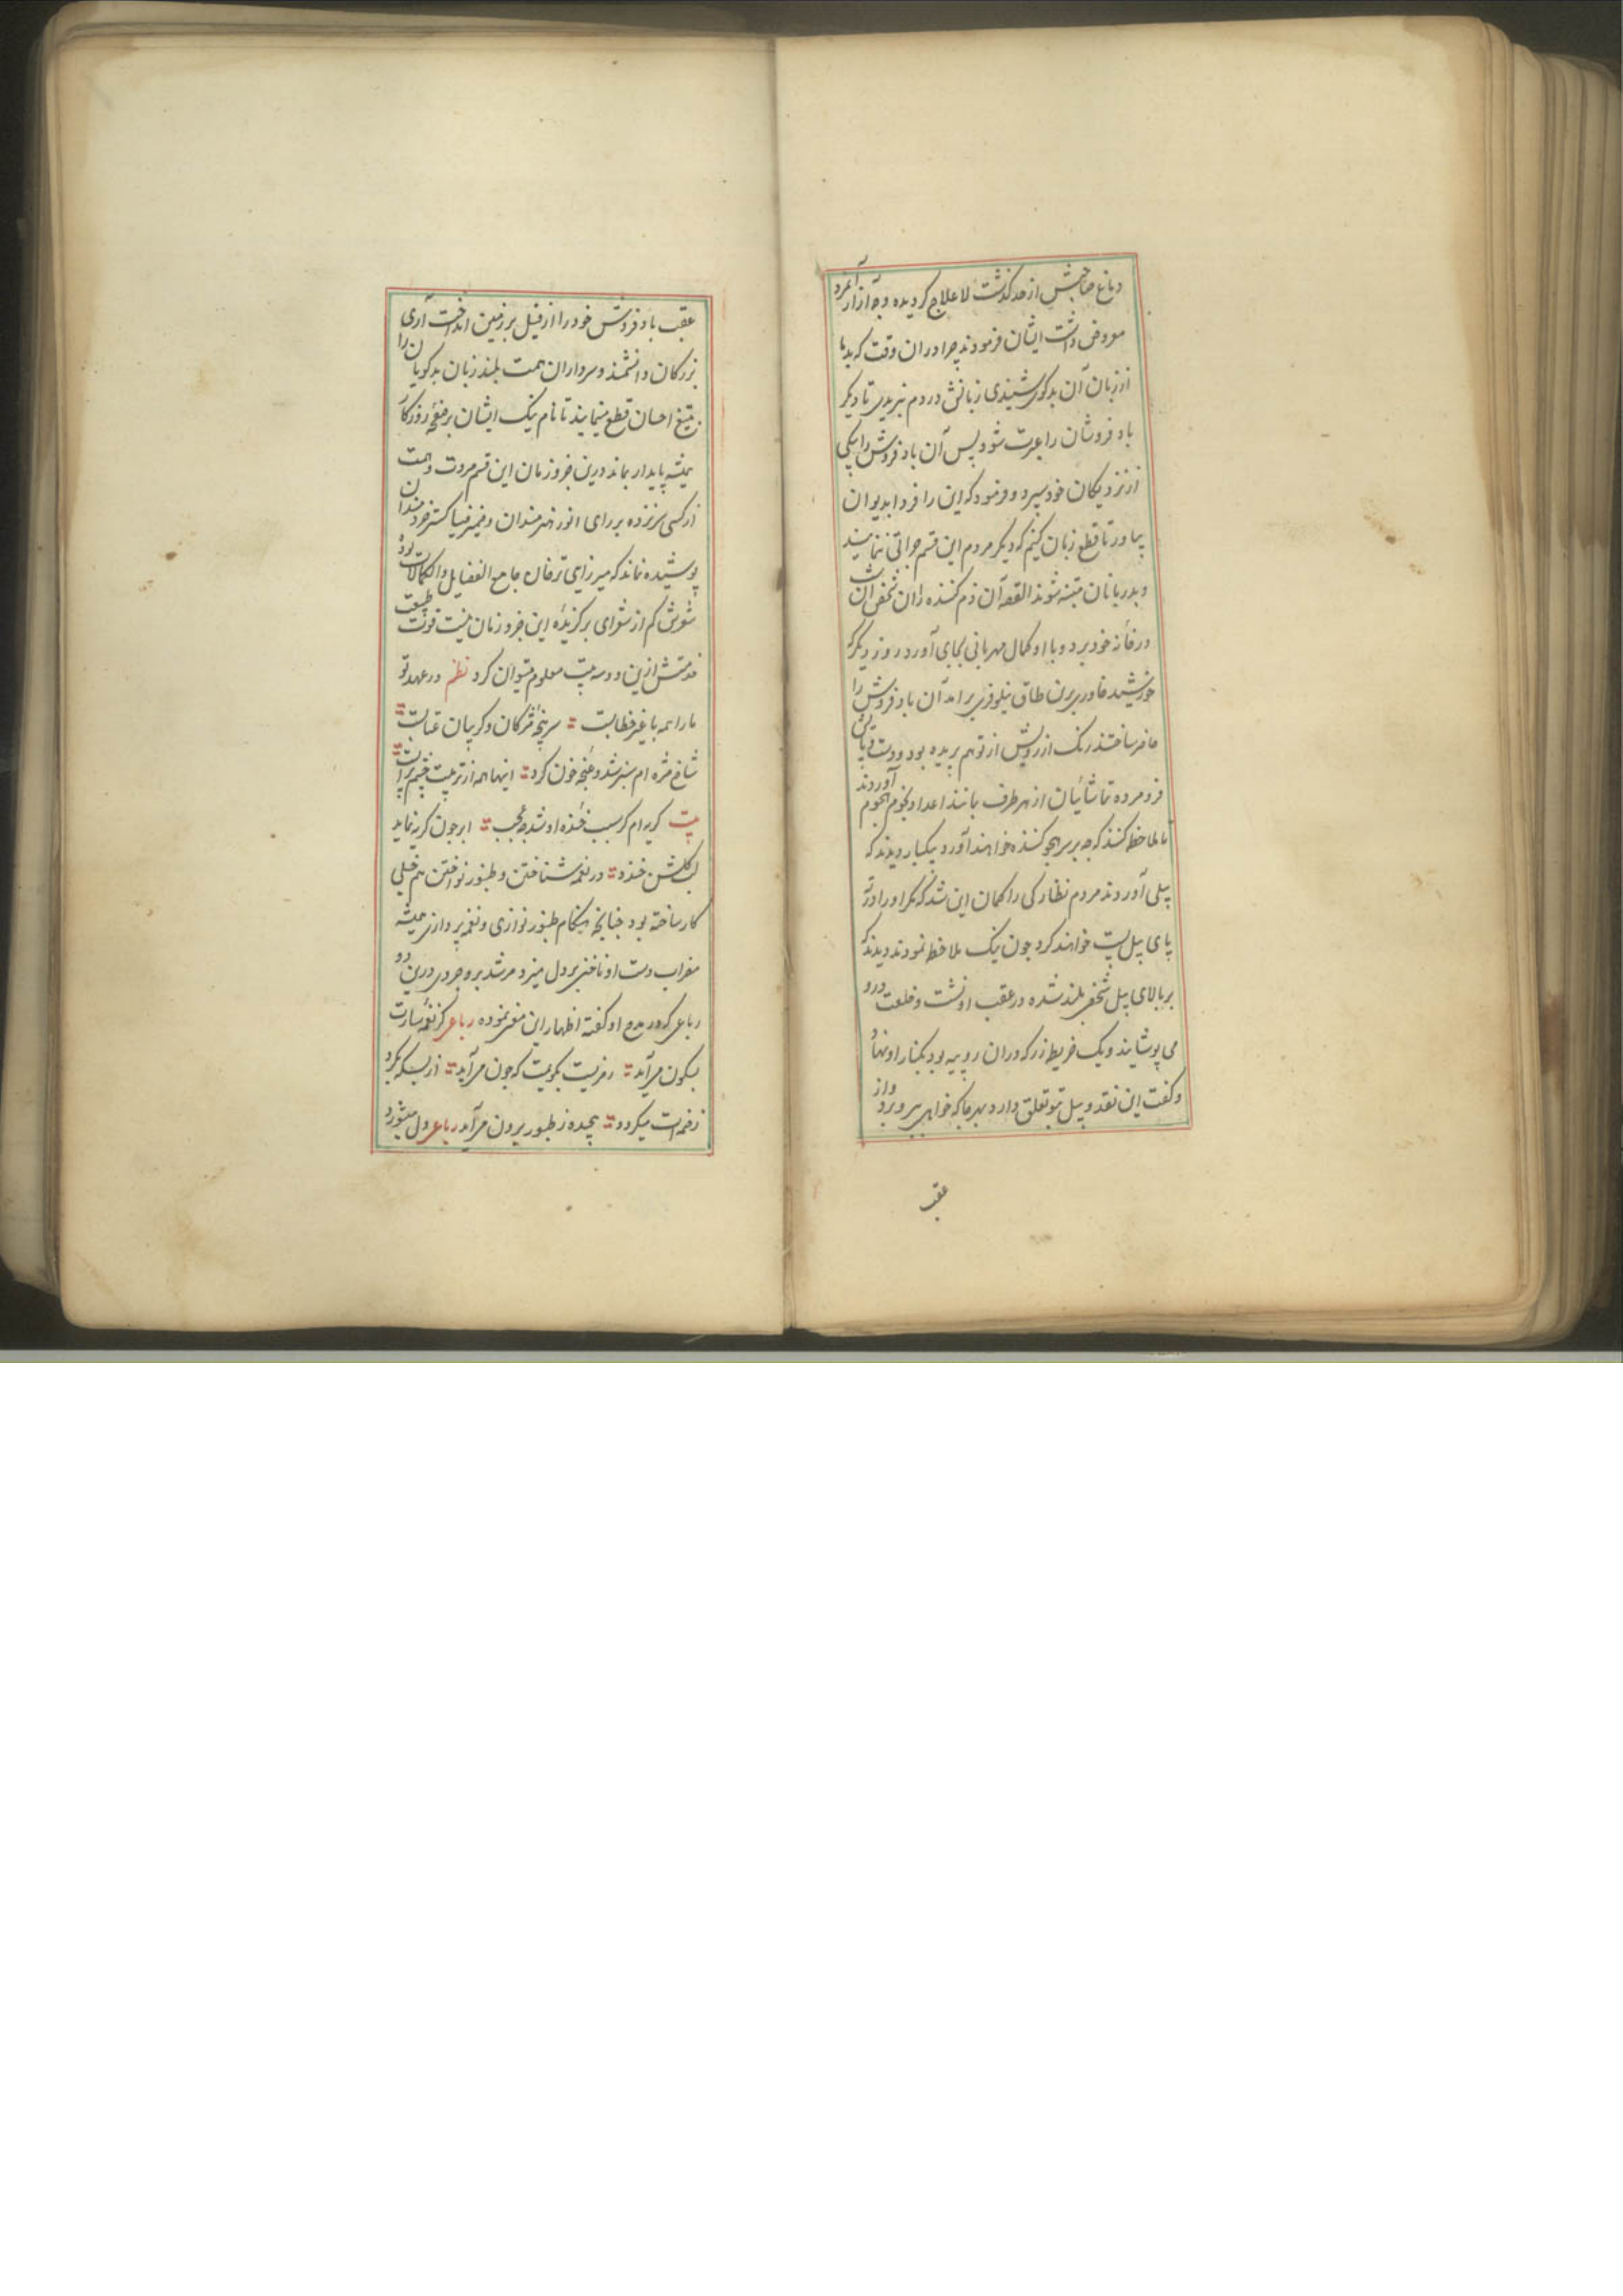 دماغ صاحبش از حد گذشت لا علاج گردیده وجه آزار آنمرد
معروض داشت ایشان فرمودند چرا دران وقت که بد ما
از زبان آن بدگوی شنیدی زبانش در دم نبریدی تا دیگر
باد فروشان را عبرت شود پس آن باد فروش را بیکی
از نزدیکان خود سپرد و فرمود که این را فردا بدیوان
بیاور تا قطع زبان کنیم که دیگر مردم این قسم جراتی ننمایند
و بدزبانان متنبه شوند القصه آن ذم کننده را آن شخص آن شب
در خانه خود برد و با او کمال مهربانی بجای آورد روز دیگر که
خورشید خاوری برین طاق نیلوفری برامد آن باد فروش را
حاضر ساختند رنگ از رویش از توهم پریده بود و دست و پایش
فرو مرده تماشائیان از هر طرف مانند اعداد نجوم هجوم آوردند
تا ملاحظه کنند که چه بر سر هجو کننده خواهند آورد یکبار دیدند که
پیلی آوردند مردم نظارگی را گمان این شد که مگر او را در ته
پای پیل پست خواهند کرد چون نیک ملاحظه نمودند دیدند که
بر بالای پیل شخصی بلند شده در عقب او نشست و خلعت درو
می پوشاند و یک خریطه زر که دران روپیه بود بکنار او نهاد
و گفت این نقد و پیل بتو تعلق دارد بهر جا که خواهی ببر و برو و از
عقب
عقب باد فروش خود را از فیل بر زمین انداخت آری
بزرگان دانشمند و سرداران همت بلند زبان بدگویان را
بتیغ احسان قطع مینمایند تا نام نیک ایشان بر صفحه روزگار
همیشه پایدار بماند درین جزو زمان این قسم مروت و همت
از کسی سر نزده بر رای انور هنرمندان و ضمیر ضیا گستر خردمندان
پوشیده نماند که میرزای ترخان جامع الفضایل والکمالات بوده
شعرش کم از شعرای برگزیده این جزو زمان نیست قوت طبیعت
خدمتش ازین دو سه بیت معلوم میتوان کرد نظم در عهد تو
مارا همه با غیر خطابست سرپنجه مژگان و گریبان عتابست
شاخ مژه ام سبز شد و غنچه خون کرد اینها همه از تربیت چشم پر آبست
بیت گریه ام گر سبب خنده او شد چه عجب ابر چون گریه نماید
لب گلشن خندد در نغمه شناختن و طنبور نواختن هم خیلی
کار ساخته بود چنانچه هنگام طنبور نوازی و نغمه پردازی همیشه
مضراب دست او ناخنی بر دل میزد مرشد بروجردی درین دو
رباعی که در مدح او گفته اظهار این معنی نموده رباعی گر نغمه سازت
بسکون می آید رمزیست بگویمت که چون می آید از بسکه بگرد
زخمه ات میگردد پیچیده ز طنبور برون می آید رباعی دل میشود